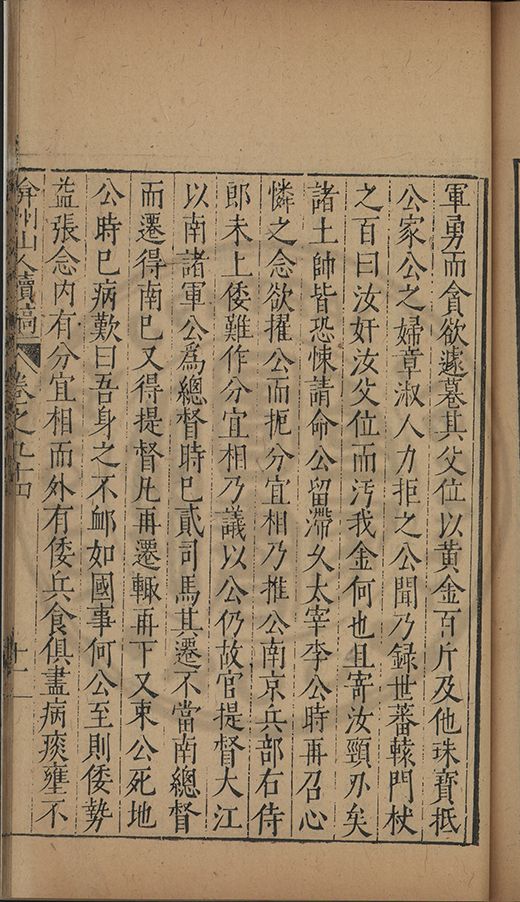 軍勇而貪欲遽墓其父位以黃金百斤及他珠寶抵
公家公之婦章淑人力拒之公聞乃録世蕃轅門杖
之百曰汝奸汝父位而污我金何也且寄汝頸刃矣
諸土帥皆恐悚請命公留滯久太宰李公時再召心
憐之念欲擢公而扼分宜相乃推公南京兵部右侍
郎未上倭難作分宜相乃議以公仍故官提督大江
以南諸軍公爲總督時巳貳司馬其遷不當南總督
而遷得南巳又得提督凡再遷輙再下又束公死地
公時巳病歎曰吾身之不䘏如國事何公至則倭勢
益張念内有分宜相而外有倭兵食俱盡病痰壅不
弇州山人續稿 卷之九十四 十一